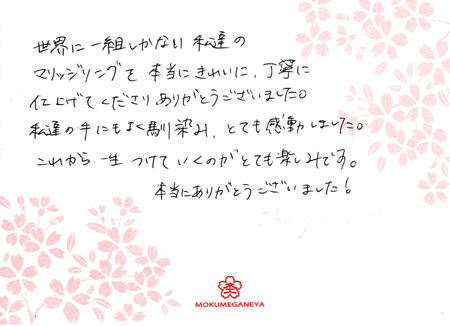 世界に一組しかない私達の
マリッジリングを本当にきれいに、丁寧に
仕上げてくださりありがとうございました。
私達の手にもよく馴染み、とても感動しました。
これから一生つけていくのがとても楽しみです。
本当にありがとうございました!
MOKUMEGANEYA